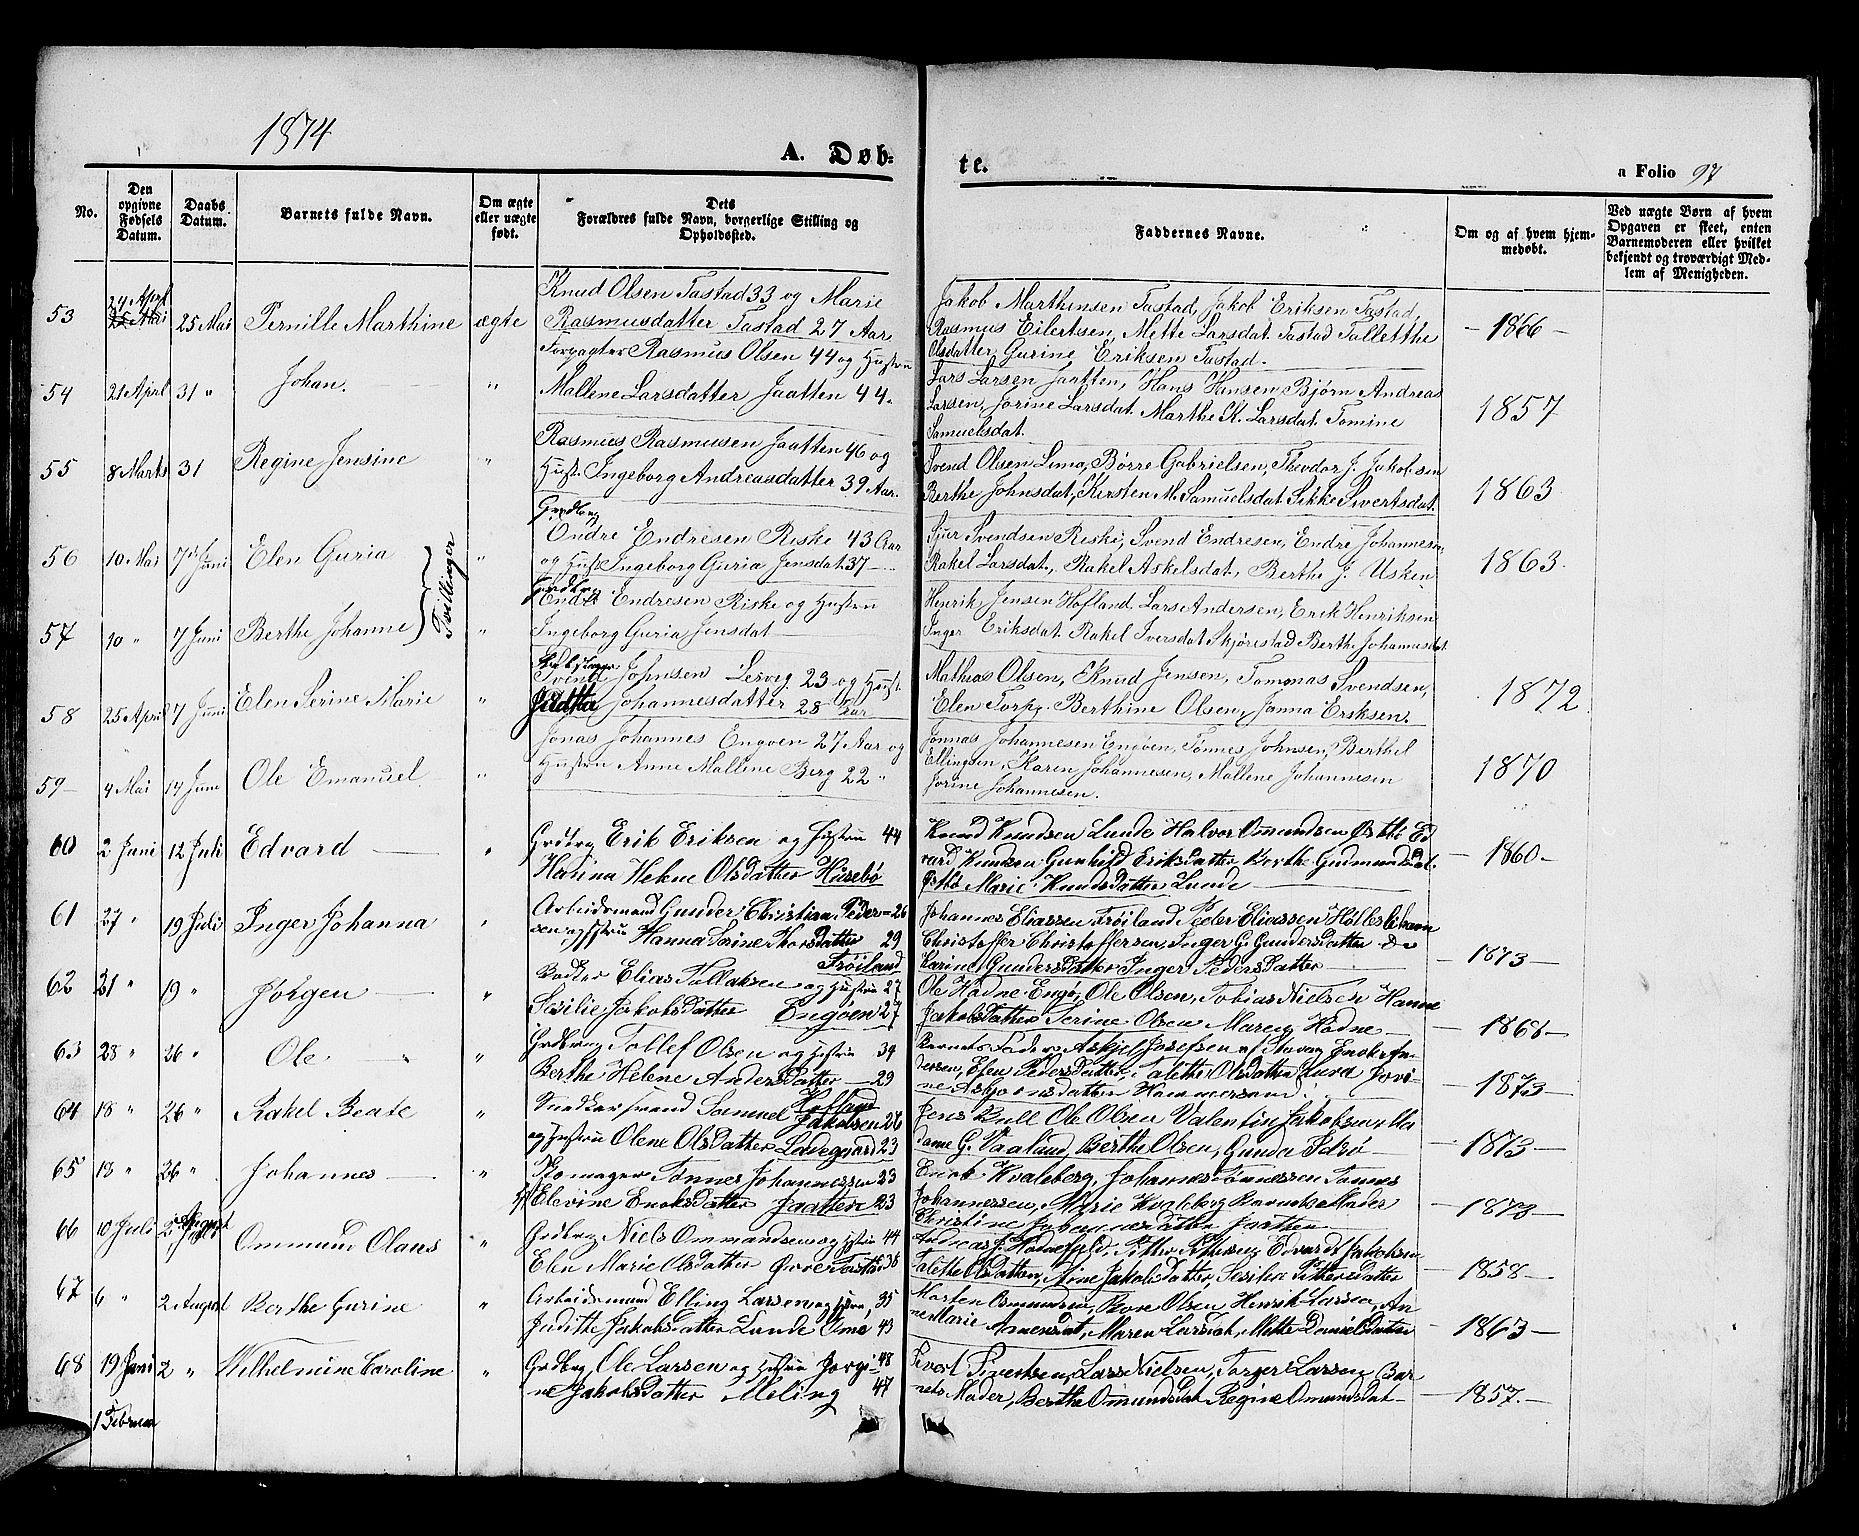 1874
A. Døb=
te.
a Folio 97
No.
Den opgivne Fødsels Datum.
Daabs Datum.
Barnets fulde Navn.
Om ægte eller uægte født.
Dets Forældres fulde Navn, borgerlige Stilling og Opholdssted.
Faddernes Navne.
Om og af hvem hjemmedøbt.
Ved uægte Børn af hvem Opgaven er skeet, enten Barnemoderen eller hvilket bekjendt og troværdigt Medlem af Menigheden.
53 24 April 25 Mai 25 Mai Pernille Marthine ægte
Knud Olsen Tastad 33 og Marie
Rasmusdatter Tastad 27 Aar
Jakob Marthinsen Tastad, Jakob Eriksen Tastad,
Rasmus Eilertsen, Mette Larsdat. Tastad Tallethe
Olsdatter, Gurine Eriksen Tastad.
- 1866 -
54 21 April 31 " Johan. "
Forpagter Rasmus Olsen 44 og Hustru
Mallene Larsdatter Jaatten 44.
Lars Larsen Jaatten, Hans Hansen Bjørn Andreas
Larsen, Jorine Larsdat. Marthe K. Larsdat. Tomine
Samuelsdat.
1857
55 8 Marts 31 Regine Jensine "
Rasmus Rasmussen Jaatten 46 og
Hust. Ingeborg Andreasdatter 39 Aar.
Svend Olsen Lima, Børre Gabrielsen, Theodor J. Jakobsen
Berthe Johnsdat, Kirsten M. Samuelsdat. Sikke Sivertsdat.
1863
56 10 Mai 7 Juni Elen Guria "
Tvillinger
Endre Endresen Riske 43 Aar
og Hust. Ingeborg Guria Jensdat. 37 -
Sjur Svendsen Riske, Svend Endresen, Endre Johannesen
Rakel Larsdat., Rakel Askelsdat., Berthe J. Usken
1863
57 10 " 7 Juni Berthe Johanne "
Endre Endresen Riske og Hustru
Ingeborg Guria Jensdat
Henrik Jensen Hofland, Lars Andersen, Erik Henriksen
Inger Eriksdat. Rakel Iversdat Skjørestad Berthe Johannesdat
58 25 April 7 Juni Elen Serine Marie "
Svend Johnsen Lervig 23 og Hust.
Johannesdatter 28 Aar
Mathias Olsen, Knud Jensen, Tommas Svendsen,
Elen Torp. Berthine Olsen, Janna Eriksen.
1872
59 4 Mai 14 Juni Ole Emanuel "
Jonas Johannes Engøen 27 Aar og
Hustru Anne Mallene Berg 22 "
Jonnas Johannesen Engøen, Tønnes Johnsen, Berthel
Ellingsen, Karen Johannesen, Mallene Johannesen
Jorine Johannesen.
1870
60 2 Juni 12 Juli Edvard "
Grdbrg Erik Eriksen og Hustru 44
Helene Olsdatter Husebø
Knud Knudsen Lunde Halvor Omundsen Østbø Ed
vard Knudsen Gunhild Eriksdatter Berthe Gudmundsdat.
Marie Knudsdatter Lunde
- 1860 -
61 27 " 19 Juli Inger Johanna "
Arbeidsmand Gunder Christian Peder= 26
sen og Hstru Hanna Serine Thorsdatter 29
Trøiland
Johannes Eliassen Trøiland Peder Eliassen Hølleslihavn
Christoffer Christoffersen Inger G. Gundersdatter do
Karine Gundersdatter Inger Pedersdatter
- 1873 -
62 21 " 19 " Jørgen "
Bødker Elias Tollaksen og Hustru 27
Sesilie Jakobsdatter Engøen 27
Ole Hadne Engø, Ole Olsen, Tobias Nielsen Hanne
Jakobsdatter Serine Olsen Maren Hadne
- 1868 -
63 28 " 26 " Ole "
Grdbrug Tollef Olsen og Hustru 34
Berthe Helene Andersdatter 29
Hofland
Barnets Fader Askjel Josefsen af Stavang Enok An
dersen, Elen Pedersdatter, Talethe Olsdatter Lura Jori-
ne Asbjørnsdatter Hammersand
- 1873 -
64 18 " 26 " Rakel Beate "
Snedkersvend Samuel Jakobsen 26
og Hustru Olene Olsdatter Ladegaard 23
Jens Bull Ole Olsen Valentin Jakobsen Ma
dame G. Vaaland, Berthe Olsen, Gunda Idsø
- 1873 -
65 13 " 26 " Johannes "
Skomager Tønnes Johannessen 23
Elevine Enoksdatter Jaatten 23
Enok Kvaleberg, Johannes Tønnessen Tønnes
Johannessen, Marie Kvaleberg Barnets Moder
Christine Johannesdatter Jaatten
- 1873 -
66 10 Juli 2 August Ommund Olaus "
Grdbrg Niels Ommundsen og Hustru 44
Elen Marie Olsdatter Øvre Tastad 36
Andreas J. Hadnefjeld, Edvard Jakobsen
Talethe Olsdatter, Ane Jakobsdatter, Sesilie Pettersdatter
- 1858 -
67 6 " 2 August Berthe Gurine "
Arbeidsmand Elling Larsen og Hstru, 35
Judithe Jakobsdatter Lunde Ome 43
Morten Ommundsen, Bore Olsen Henrik Larsen, An
ne Marie Maren Larsdat, Mette Danielsdatter
- 1863 -
68 19 Juni 2 " Wilhelmine Caroline "
Grdbrg Ole Larsen og Hustru Jorgi= 48
ne Jakobsdatter Meling 47
Sivert Sivertsen, Lars Nielsen, Torger Larsen Bar
nets Moder, Berthe Omundsdat Regine Omundsdat
- 1857. -
1 Februar